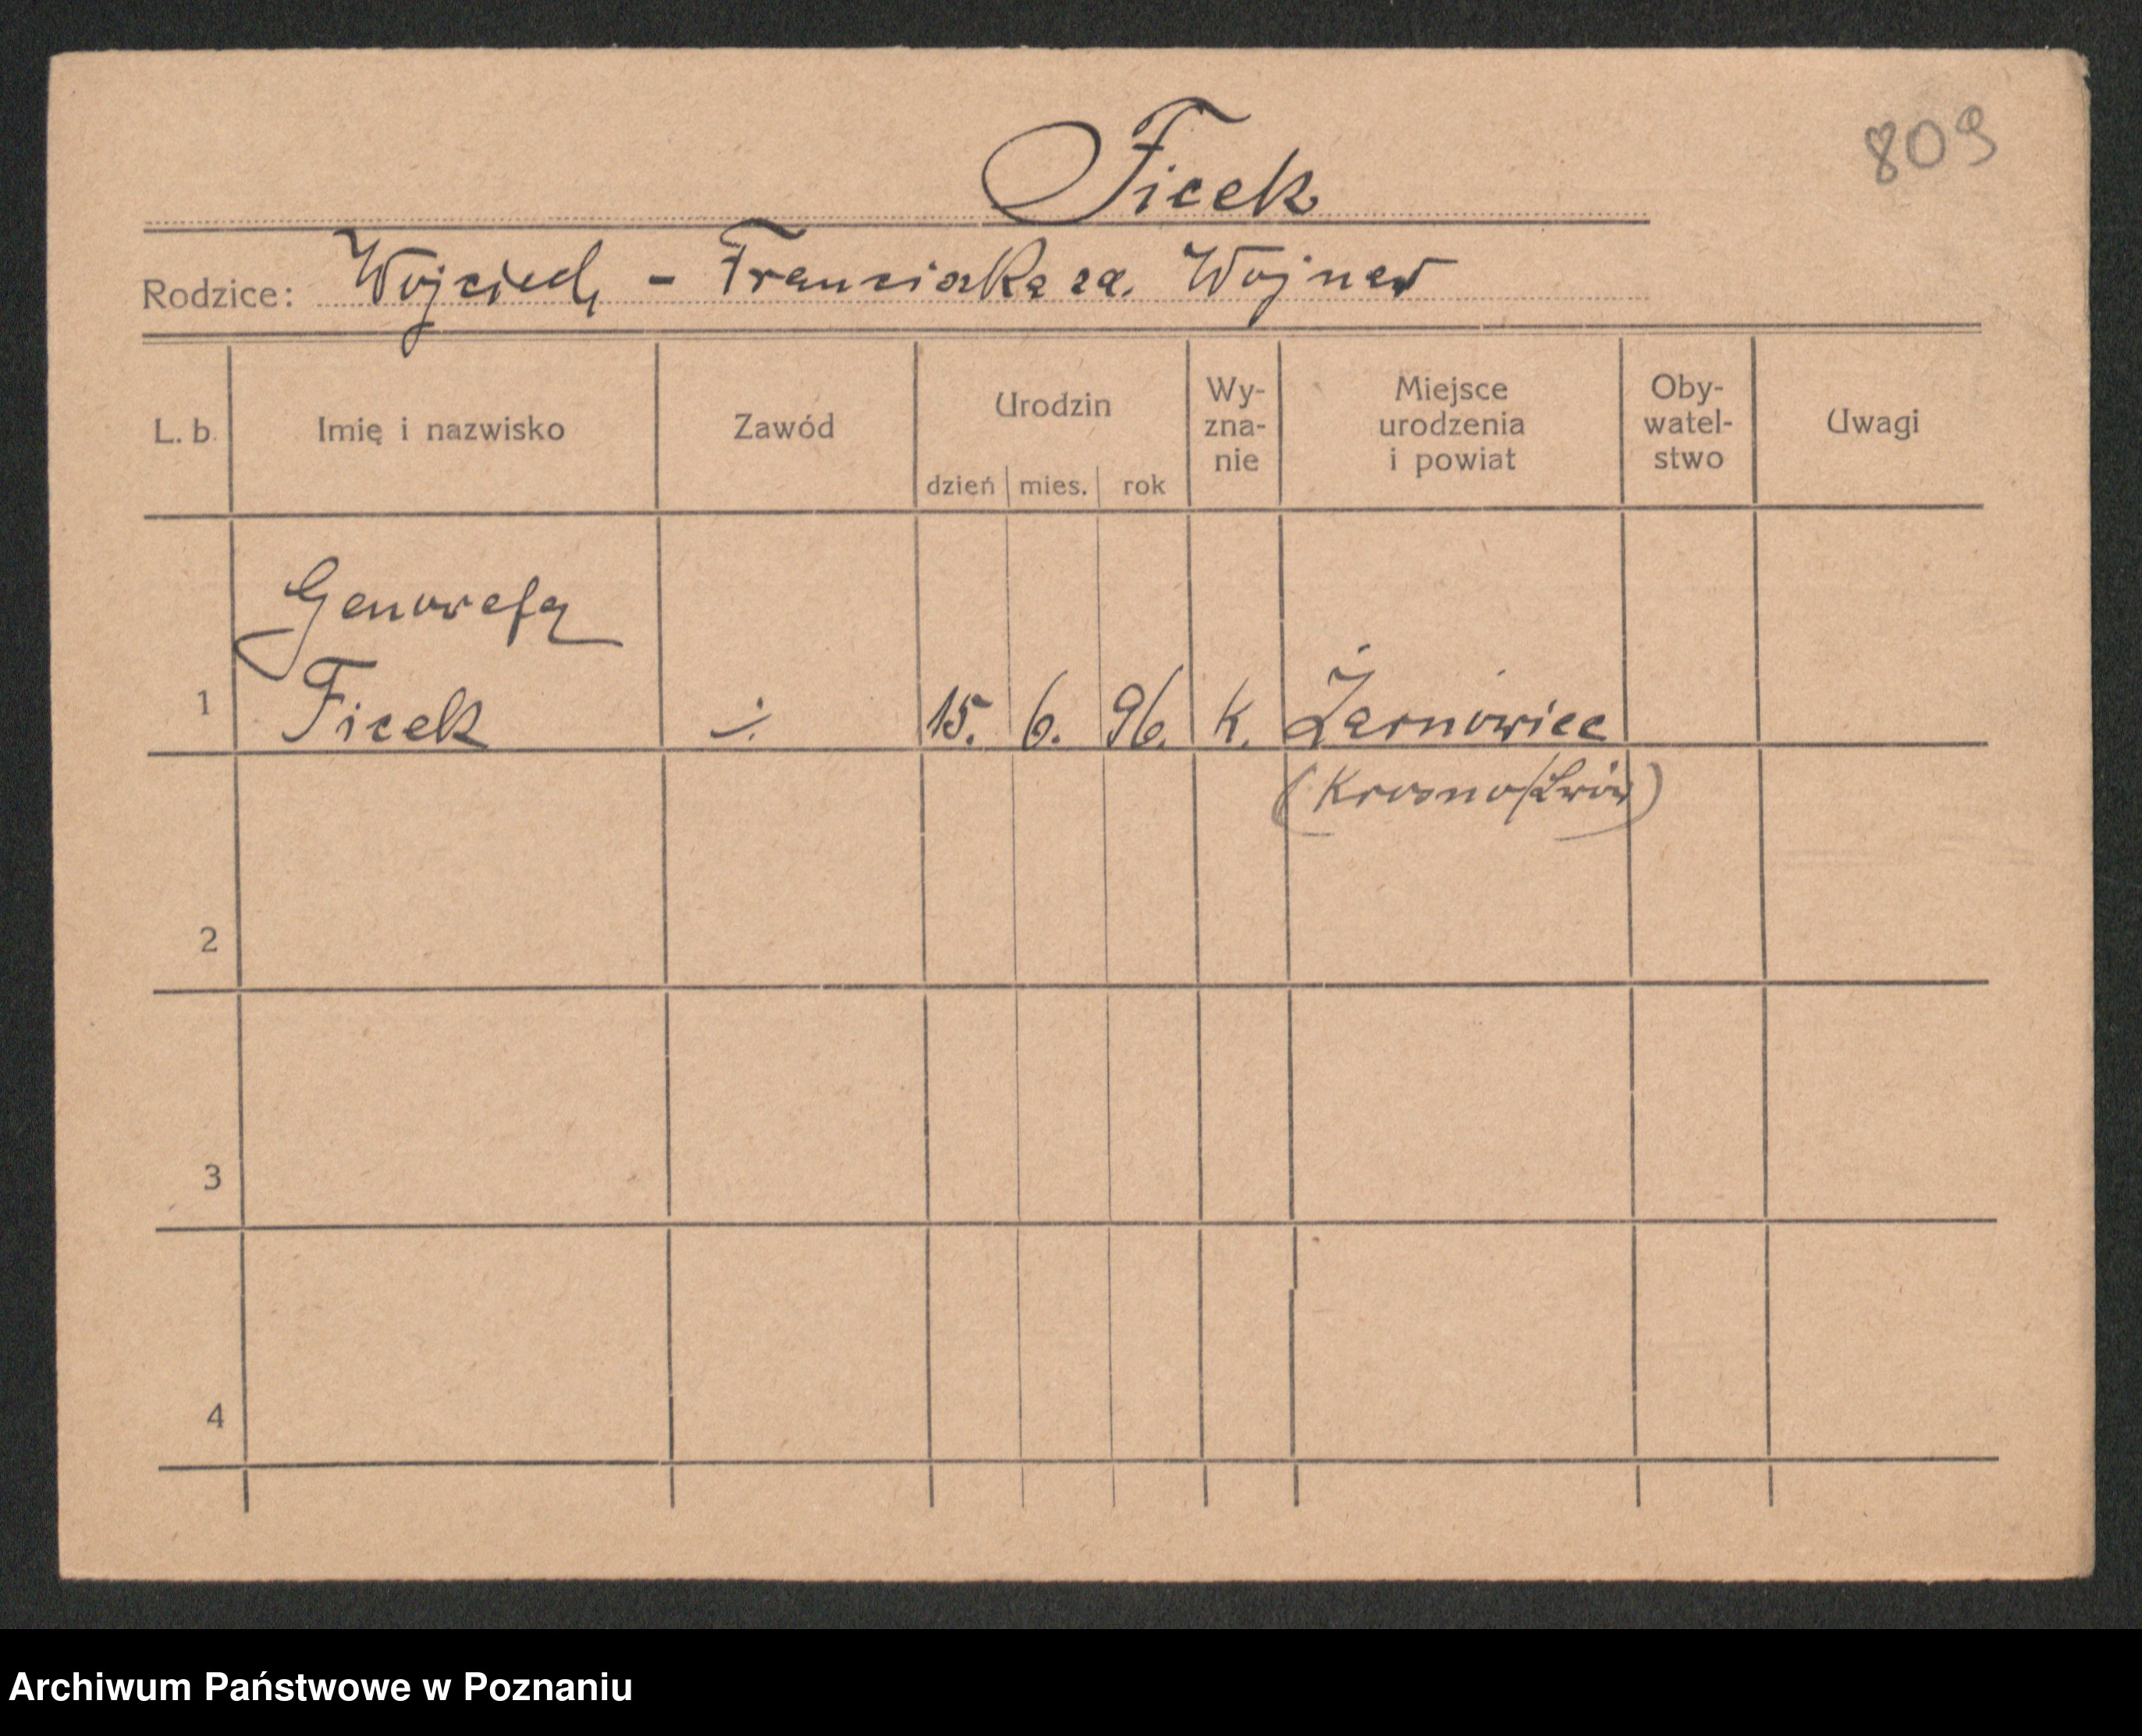 Ficek
809
Rodzice: Wojciech - Franciszka za. Wojnar
L. b. Imię i nazwisko Zawód Urodzin dzień mies. rok Wy-zna-nie Miejsce urodzenia i powiat Oby-watel-stwo Uwagi
Genowefa
1 Ficek ÷ 15. 6. 96. K. Żarnowiec
(Krosno/Lwów)
2
3
4
Archiwum Państwowe w Poznaniu